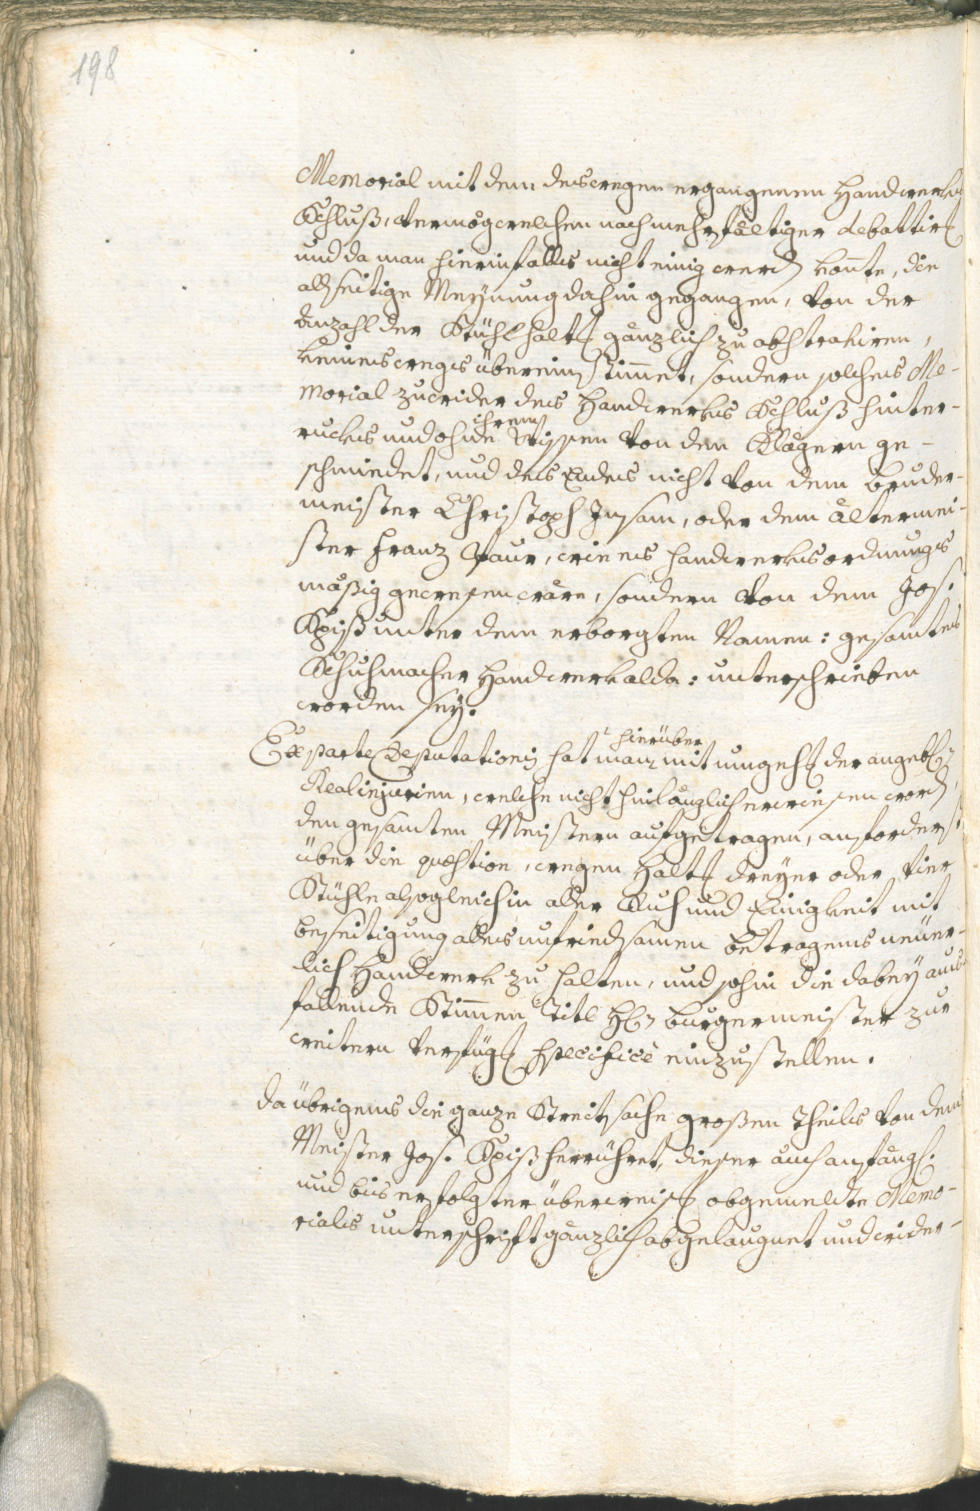 198
Memorial mit dem deswegen ergangenen Handwerks
Schluß, vermög welchem nach mehrfältiger debattirg
und da man hierinfalls nicht einig werdn konte, die
allseitige Meÿnung dahin gegangen, von der
Anzahl der Stühlhaltg gänzlich zu abstrahiren,
keineswegs übereinstimet, sondern solches Me-
morial zuwider des Handwerks Schluß hinter-
ihrem
rucks und ohne Wissen von den Klägern ge-
schmiedet, und des Endes nicht von dem bruder-
meister Christoph Insam, oder dem Altermei-
ster Franz Paur, wie es handwerksordnungs
mäßig gewesen wäre, sondern von dem Jos.
Spiß unter dem erborgten Namen: gesamtes
Schuhmacher Handwerk alda: unterschrieben
worden seÿ.
hierüber
Ex parte Deputationis hat man mit umgehg der angebl.
Realinjurien, welche nicht hinlänglich erwiesen wordn,
den gesamten Meistern aufgetragen, anforders.
über die quæstion, wegen Haltg dreÿer oder vier
Stühle alsogleich in aller Ruh und Einigkeit mit
beseitigung alles unfriedsamen betragens neüer-
lich Handwerk zu halten, und sohin die dabeÿ aus-
fallende Stimen Titl H. burgermeister zur
weitern Verfügg specificè einzustellen.
Da übrigens die ganze Streitsache großen Theils von dem
Meister Jos. Spiß herrühret, dieser auch anfängl.
und bis erfolgter überweisg obgemeldte Memo-
rials unterschrift gänzlich abgelaugnet und wider-